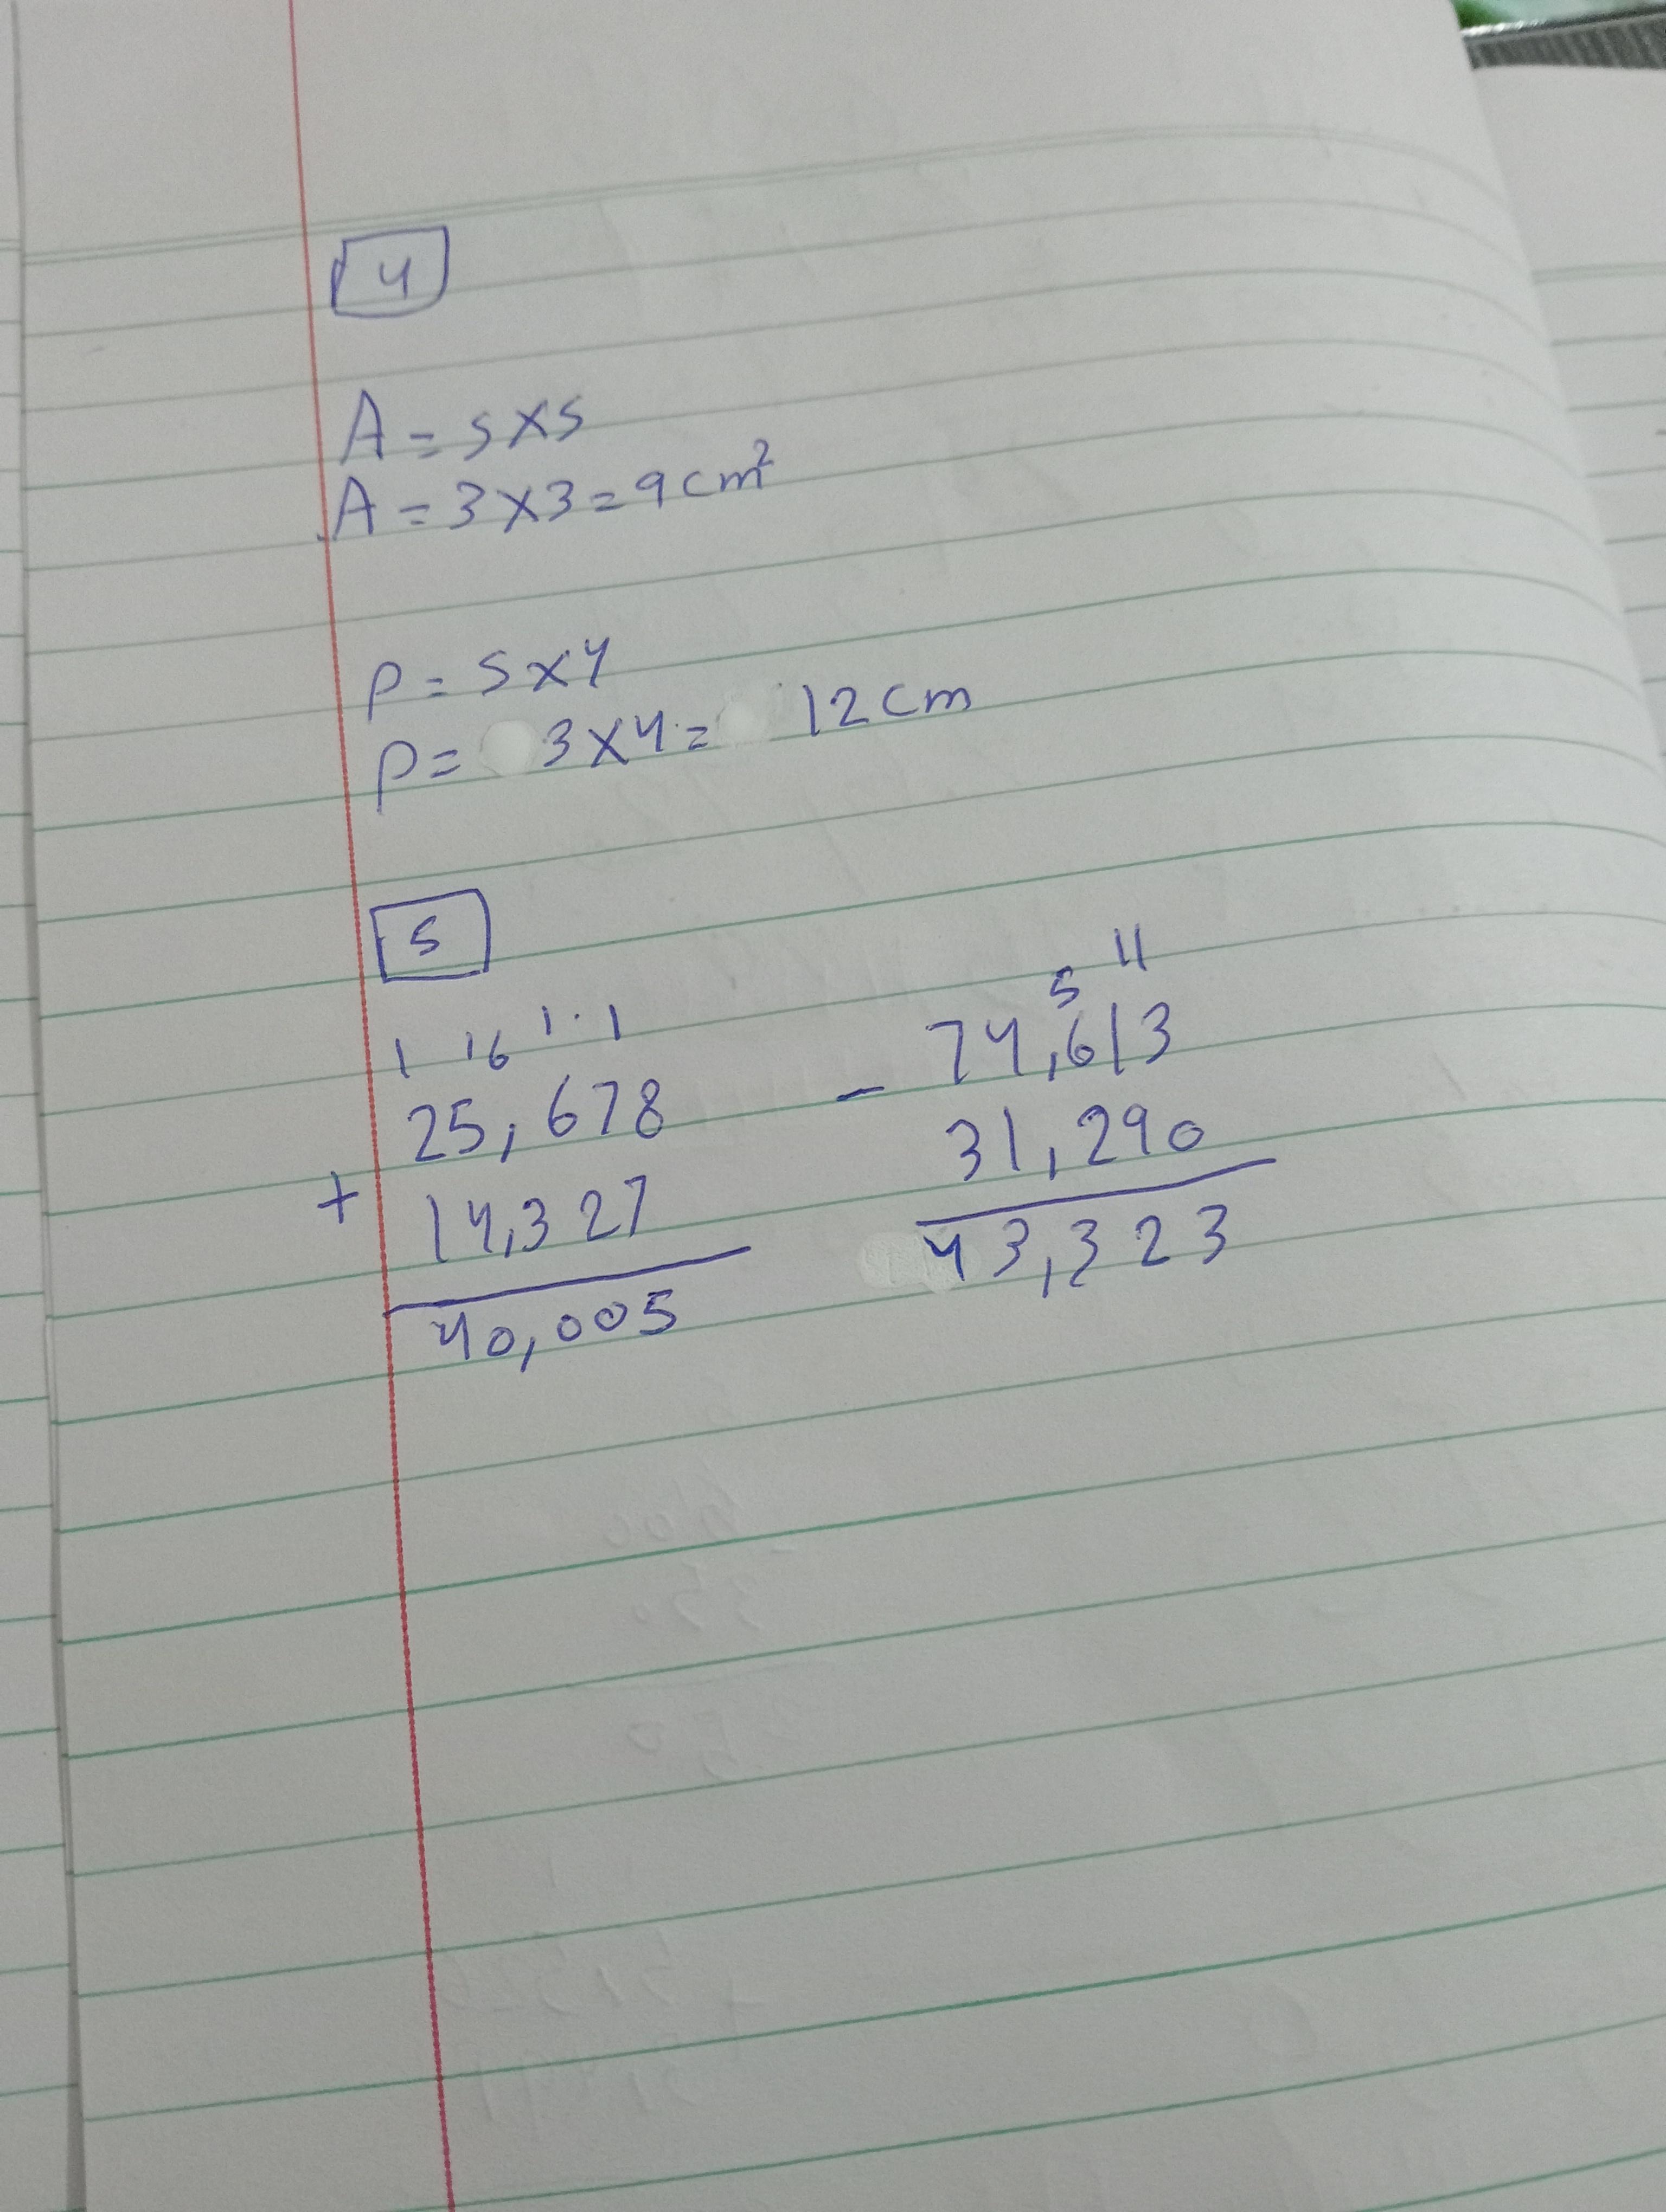 4
A = s x s
A = 3 x 3 = 9 cm²
P = s x 4
P = 3 x 4 = 12 cm
5
1 16 1 1
25,678
+ 14,327
40,005
5 11
- 74,613
31,290
43,323